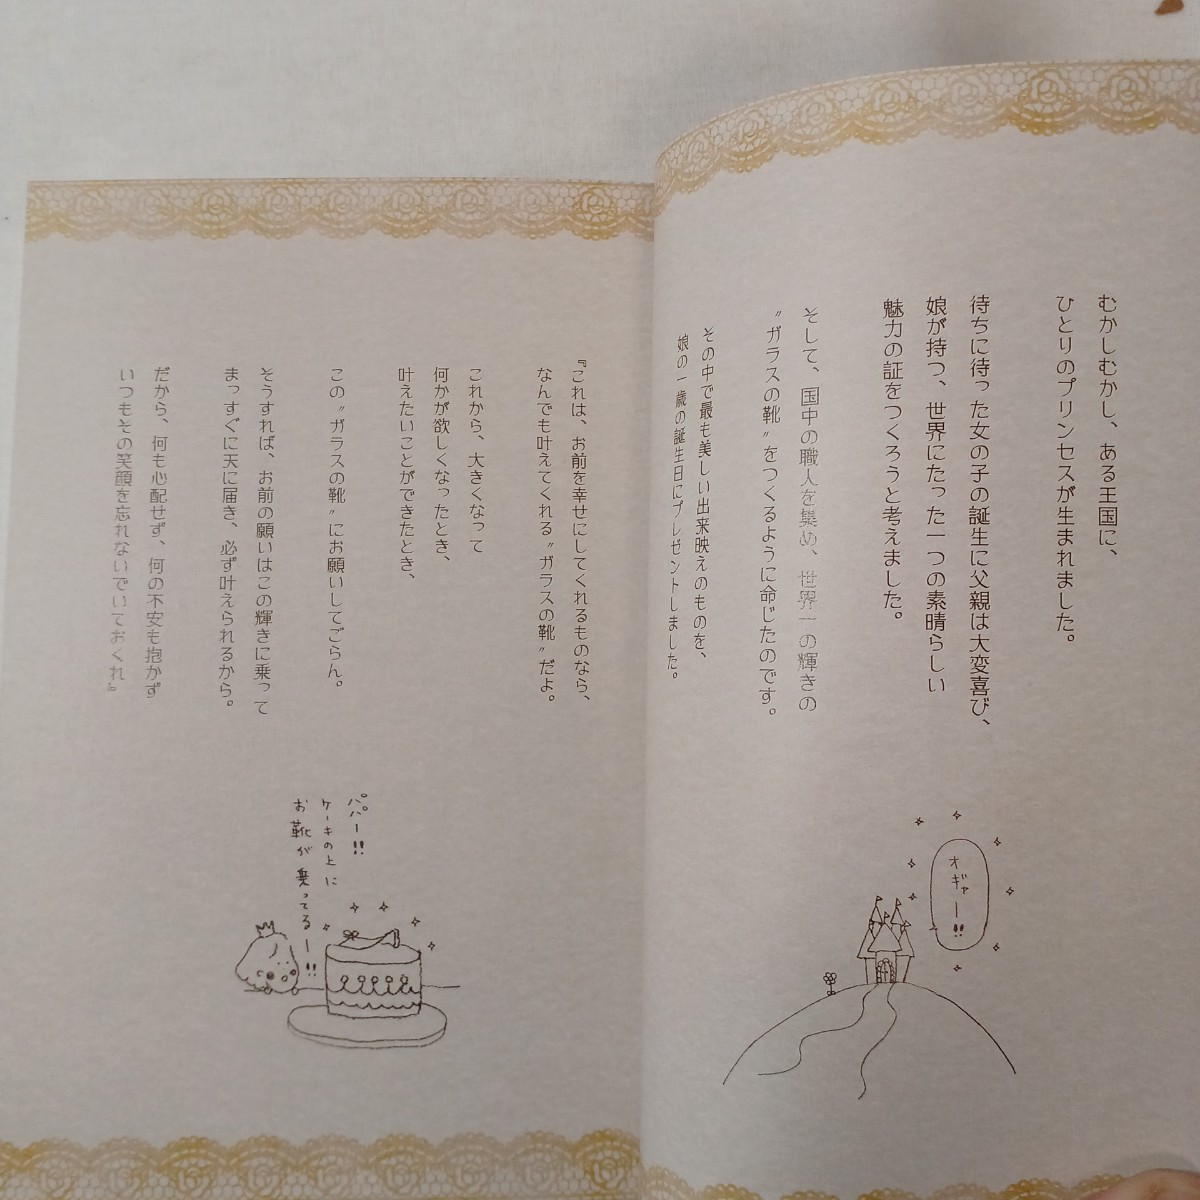 むかしむかし、ある王国に、
ひとりのプリンセスが生まれました。
待ちに待った女の子の誕生に父親は大変喜び、
娘が持つ、世界にたった一つの素晴らしい
魅力の証をつくろうと考えました。
そして、国中の職人を集め、世界一の輝きの
〝ガラスの靴〟をつくるように命じたのです。
その中で最も美しい出来映えのものを、
娘の一歳の誕生日にプレゼントしました。
オギャー!!
『これは、お前を幸せにしてくれるものなら、
なんでも叶えてくれる〝ガラスの靴〟だよ。
これから、大きくなって
何かが欲しくなったとき、
叶えたいことができたとき、
この〝ガラスの靴〟にお願いしてごらん。
そうすれば、お前の願いはこの輝きに乗って
まっすぐに天に届き、必ず叶えられるから。
だから、何も心配せず、何の不安も抱かず
いつもその笑顔を忘れないでいておくれ』
パパー!!
ケーキの上に
お靴が乗ってるー!!